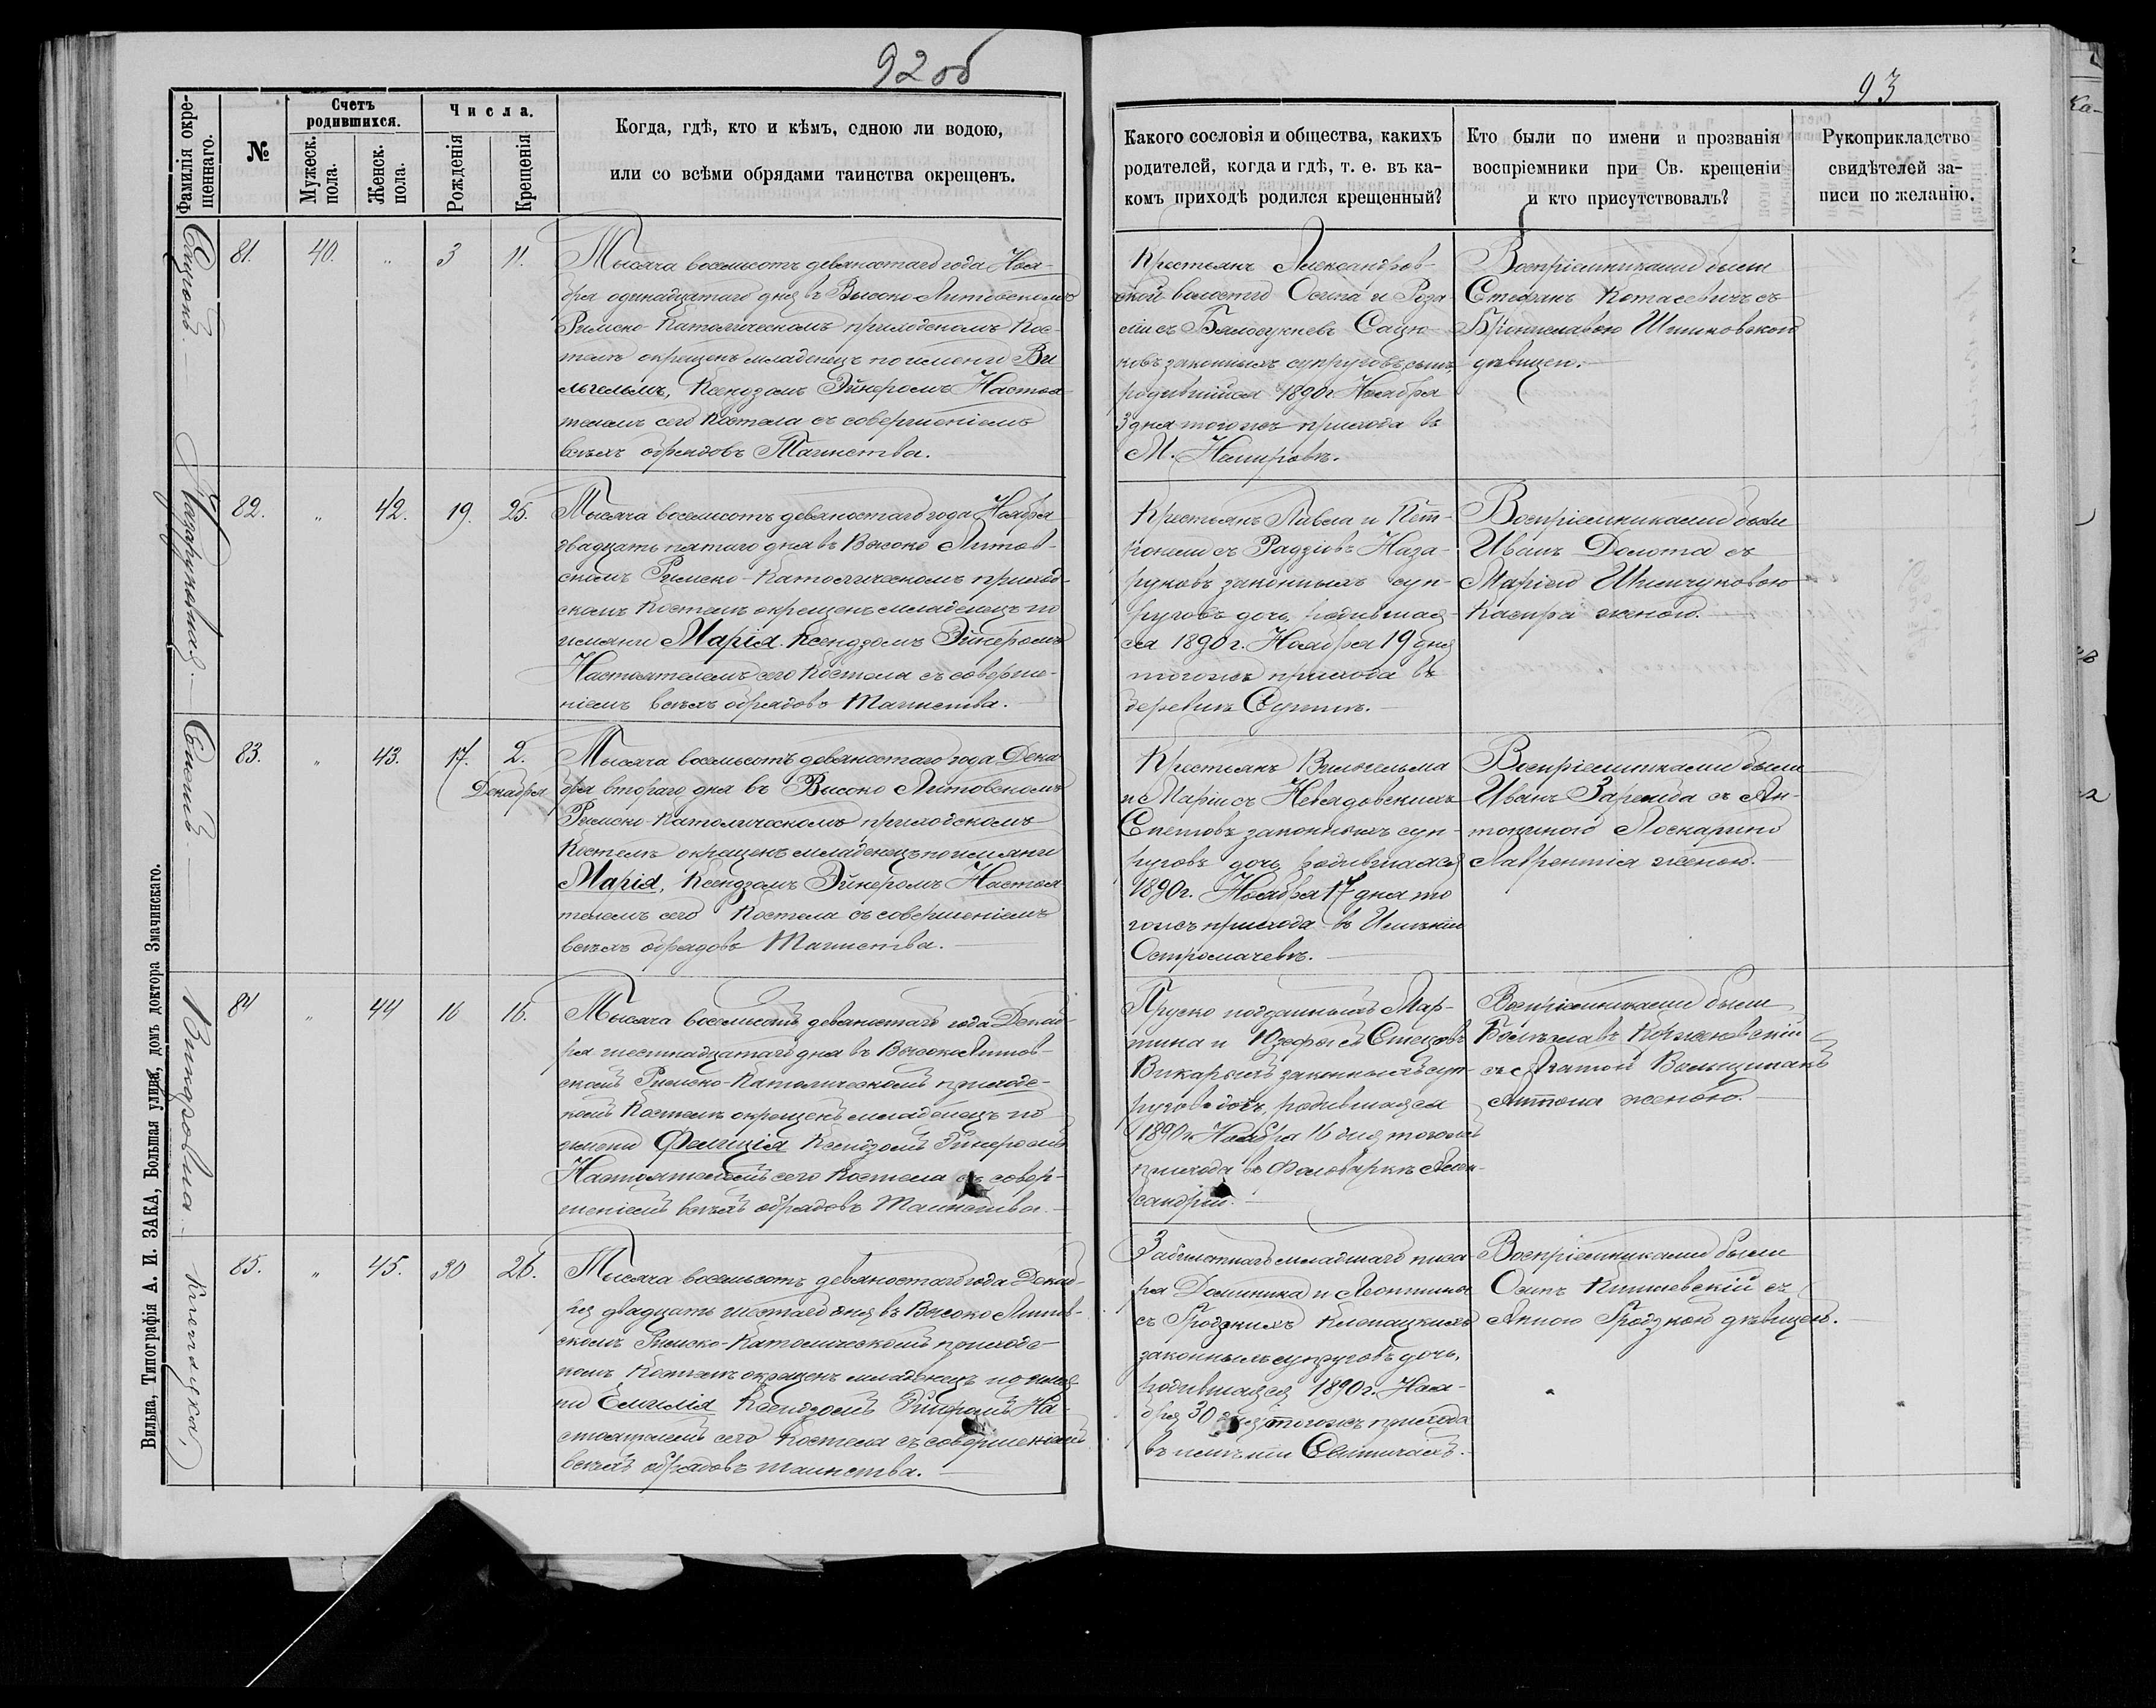 92 об
93
Фамилія окре-
щеннаго.
№
Счетъ
родившихся.
Мужеск.
пола.
Женск.
пола.
Числа.
Рожденія
Крещенія
Когда, гдѣ, кто и кѣмъ, одною ли водою,
или со всѣми обрядами таинства окрещенъ.
Какого сословія и общества, какихъ
родителей, когда и гдѣ, т. е. въ ка-
комъ приходѣ родился крещенный?
Кто были по имени и прозванія
воспріемники при Св. крещеніи
и кто присутствовалъ?
Рукоприкладство
свидѣтелей за-
писи по желанію.
Сацюкъ.
81. 40. " 3 11.
Тысяча восемьсотъ девяностаго года Ноя-
бря одинадцатаго дня въ Высоко-Литовскомъ
Римско-Католическомъ приходскомъ Кос-
телѣ окрещенъ младенецъ по имени Ви
льгельмъ, Ксендзомъ Эйнеромъ Настоя
телемъ сего Костела съ совершеніемъ
всѣхъ обрядовъ Таинства.
Крестьянъ Александров-
ской волости Осипа и Роза-
ліи съ Сацю-
ковъ законныхъ супруговъ сынъ,
родившійся 1890 г. Ноября
3 дня тогожъ прихода въ
М. Немировѣ.
Воспріемниками были
Стефанъ Котасевичъ съ
Брониславою Шпиковской
дѣвицею.
Назаруковна.
82. " 42. 19. 25.
Тысяча восемьсотъ девяностаго года Ноября
двадцать пятаго дня въ Высоко Литов-
скомъ Римско-Католическомъ приход-
скомъ Костелѣ окрещенъ младенецъ по
имяни Марія. Ксендзомъ Эйнеромъ
Настоятелемъ сего Костела съ соверше-
ніемъ всѣхъ обрядовъ Таинства.
Крестьянъ Павла и Пет-
ронели съ Радзіовъ Наза-
руковъ законныхъ суп-
руговъ дочь, родившая
ся 1890 г. Ноября 19 дня
тогожъ прихода въ
деревнѣ
Воспріемниками были
Иванъ Долота съ
Маріею Шимчуковою
Каспра женою.
Спетъ.
83. " 43. 17. 2.
Декабря
Тысяча восемьсотъ девяностаго года Дека
бря втораго дня въ Высоко Литовскомъ
Римско-Католическомъ приходскомъ
Костелѣ окрещенъ младенецъ по имяни
Марія, Ксендзомъ Эйнеромъ Настоя
телемъ сего Костела съ совершеніемъ
всѣхъ обрядовъ Таинства.
Крестьянъ Вильгельма
и Маріи съ Невядовскихъ
Спетовъ законныхъ суп-
руговъ дочь, родившаяся
1890 г. Ноября 17 дня то
гожъ прихода въ Имѣніи
Остромечевѣ.
Воспріемниками были
Иванъ Заремба съ Ан-
тониною
Лаврентія женою.
Викаровна
84 " 44 16 16.
Тысяча восемьсотъ девяностаго года Декаб-
ря шестнадцатаго дня въ Высоко Литов-
скомъ Римско-Католическомъ приходс-
комъ Костелѣ окрещенъ младенецъ по
имени Фелиція Ксендзомъ Эйнеромъ
Настоятелемъ сего Костела съ совер-
шеніемъ всѣхъ обрядовъ Таинства.
Пруско подданныхъ Мар-
тина и Юзефы съ
законныхъ суп-
руговъ дочь, родившаяся
1890 г. Ноября 16 дня тогожъ
прихода въ Фольваркѣ Алек-
сандріи.
Воспріемниками были
Болеславъ Корженевскій
съ Агатой
Антона женою.
Клопоцкая,
85. " 45. 30 26.
Тысяча восемьсотъ девяностаго года Декаб-
ря двадцать шестаго дня въ Высоко Литов-
скомъ Римско-Католическомъ приходс-
комъ Костелѣ окрещенъ младенецъ по имя
ни Емилія Ксендзомъ Эйнеромъ На-
стоятелемъ сего Костела съ совершеніемъ
всѣхъ обрядовъ таинства.
младшаго писа-
ря Доминика и Леонтины
съ Гродзкихъ Клопоцкихъ
законныхъ супруговъ дочь,
родившаяся 1890 г. Ноя-
бря 30 дня тогожъ прихода
въ имѣніи
Воспріемниками были
Осипъ съ
Анною Гродзкой дѣвицею.
Вильна, Типографія А. И. ЗАКА, Большая улица, домъ доктора Змачинскаго.